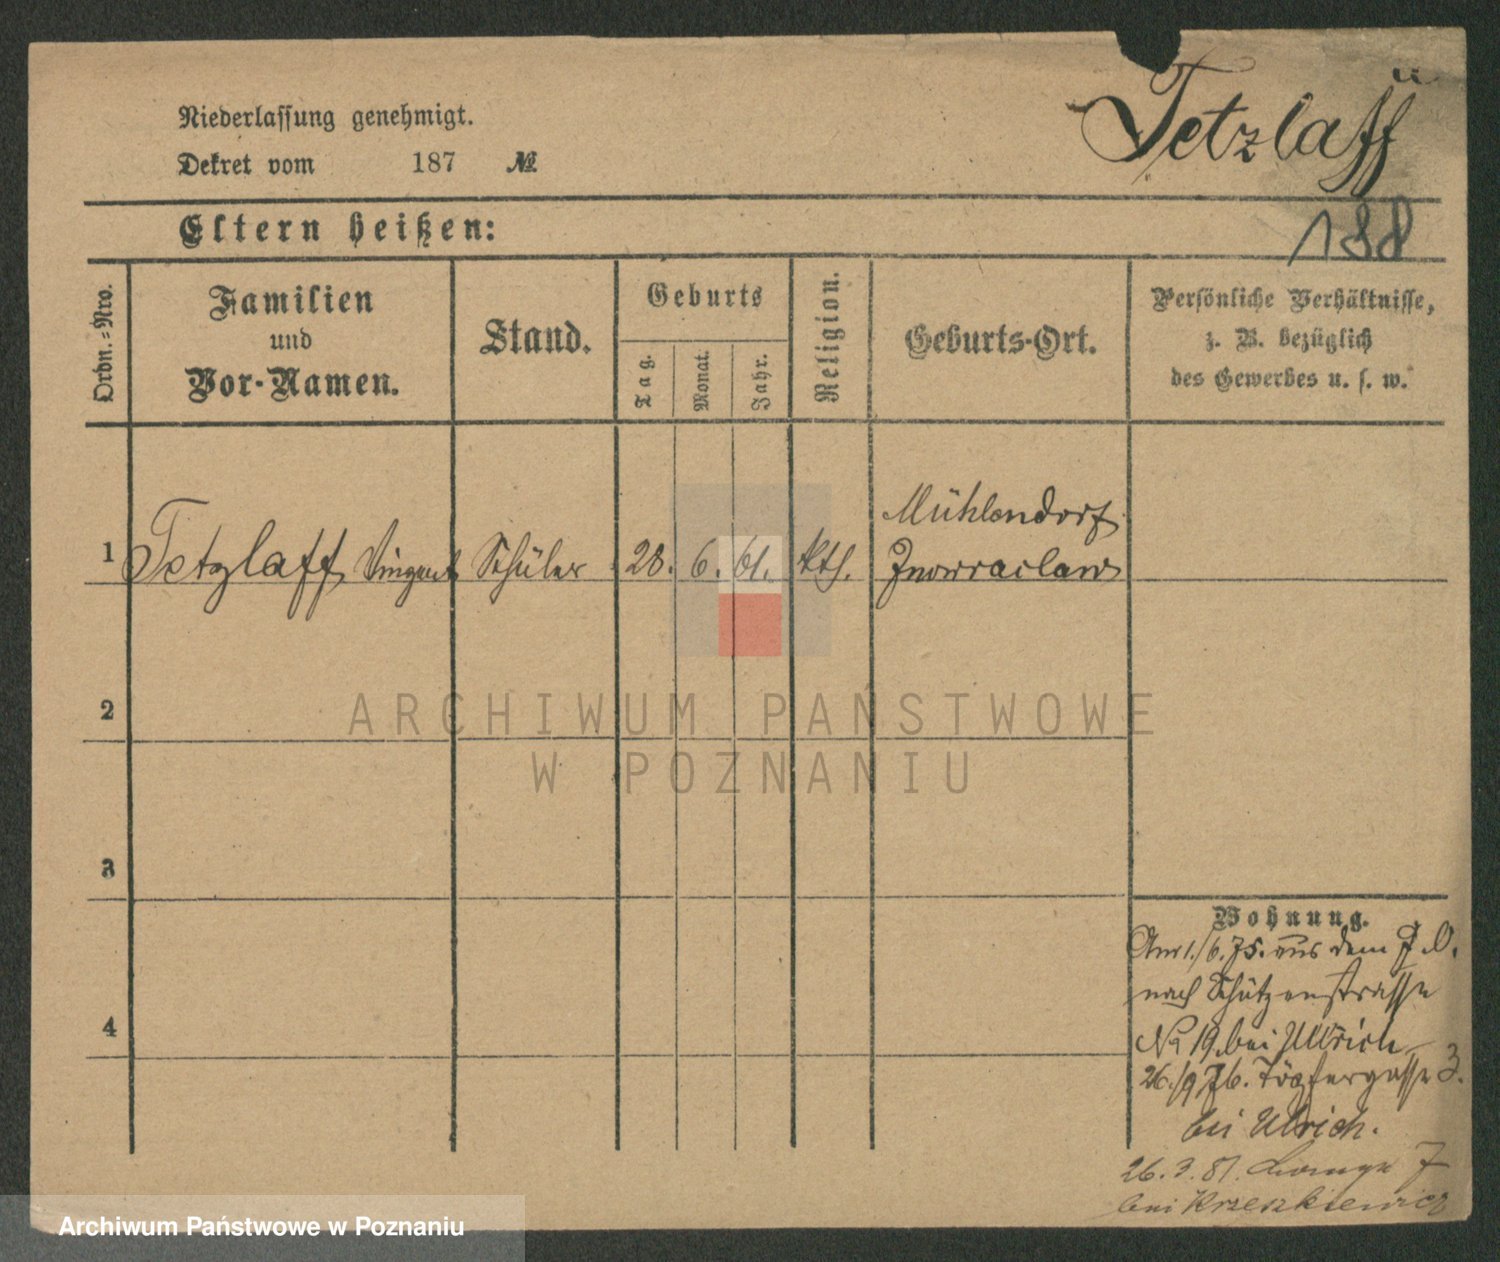 Niederlassung genehmigt.
Dekret vom 187 №
Tetzlaff
188
Eltern heißen:
Ordn.=Nro.
Familien
und
Vor-Namen.
Stand.
Geburts
Tag.
Monat.
Jahr.
Religion.
Geburts-Ort.
Persönliche Verhältnisse,
z. B. bezüglich
des Gewerbes u. s. w.
Mühlendorf
1 Tetzlaff Vinzent Schüler 28. 6. 61. kth. Inowraclaw
2
3
4
Wohnung.
Am 1./6. 75. aus dem
nach Schützenstrasse
No 19. bei Ullrich
26./9 76. Töpfergasse 3.
bei Ulrich.
26. 3. 81.
bei Krzeszkiewicz
ARCHIWUM PAŃSTWOWE
W POZNANIU
Archiwum Państwowe w Poznaniu